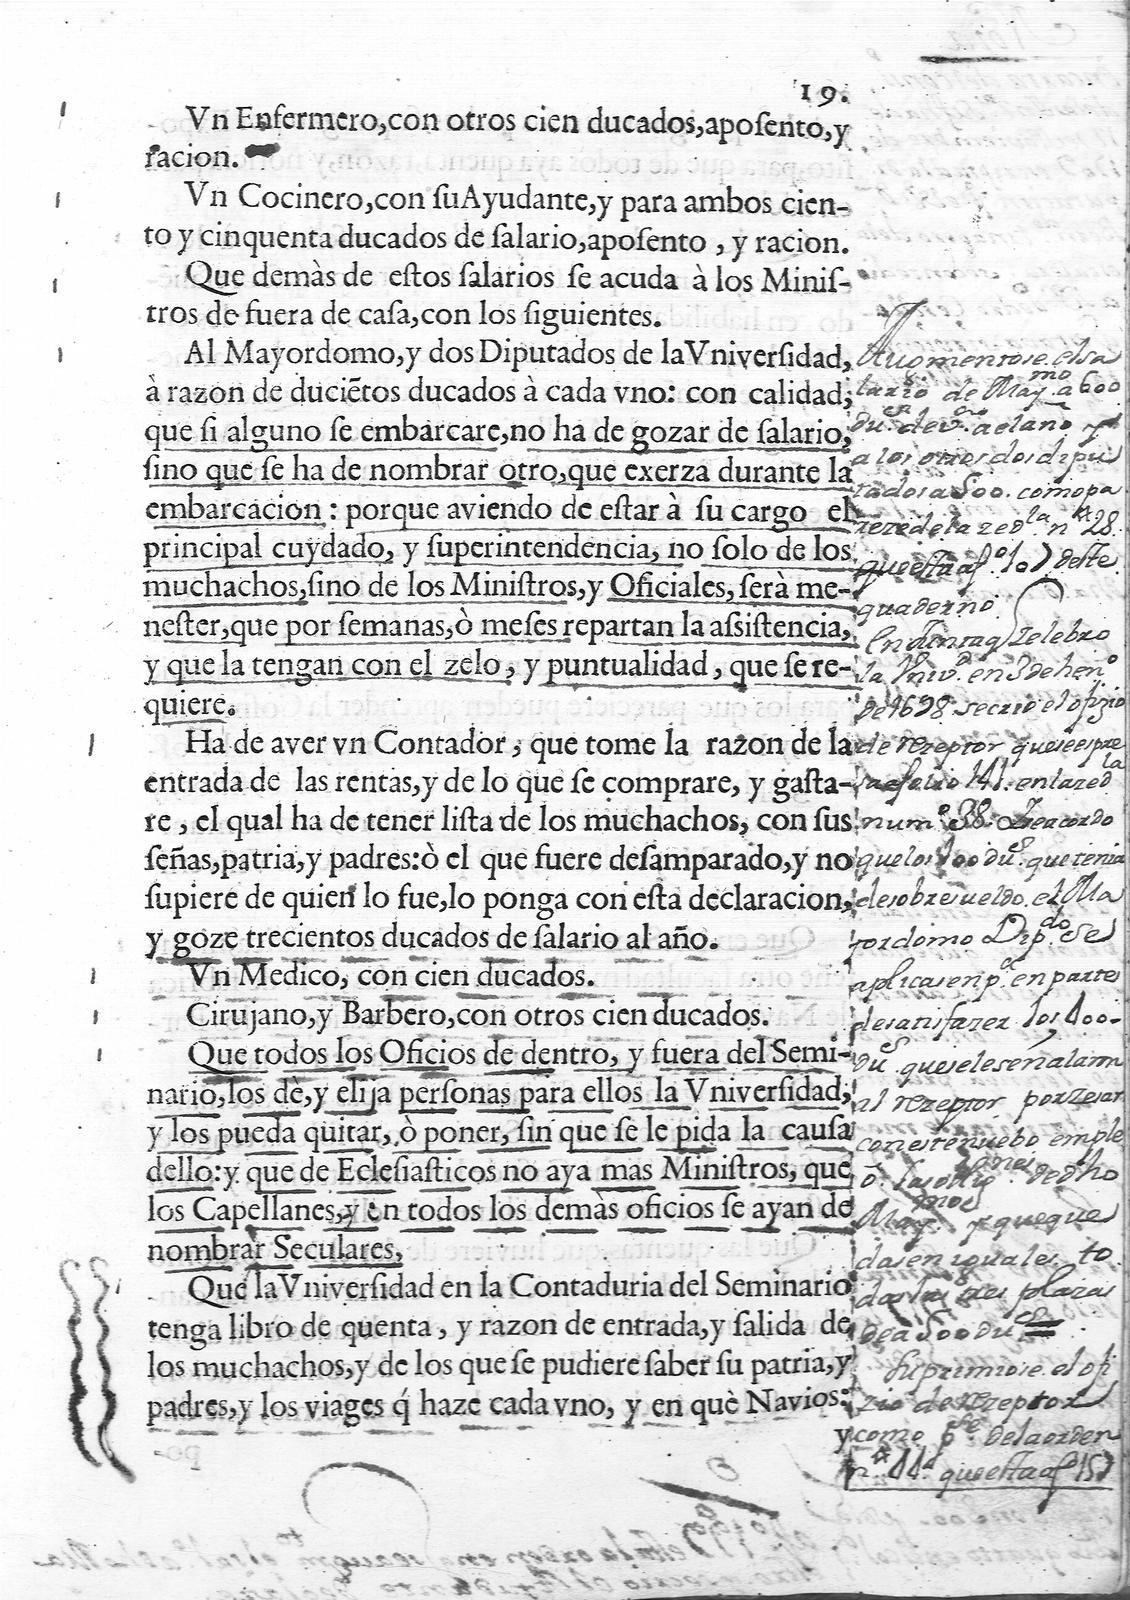 19.
Vn Enfermero,con otros cien ducados,aposento,y
racion.
Vn Cocinero,con suAyudante,y para ambos cien-
to y cinquenta ducados de salario,aposento , y racion.
Que demàs de estos salarios se acuda à los Minis-
tros de fuera de casa,con los siguientes.
Al Mayordomo,y dos Diputados de laVniversidad,
à razon de duciẽtos ducados à cada vno: con calidad,
que si alguno se embarcare,no ha de gozar de salario,
sino que se ha de nombrar otro,que exerza durante la
embarcacion : porque aviendo de estar à su cargo el
principal cuydado, y superintendencia, no solo de los
muchachos,sino de los Ministros,y Oficiales, serà me-
nester,que por semanas,ò meses repartan la assistencia,
y que la tengan con el zelo, y puntualidad, que se re-
quiere.
Ha de aver vn Contador, que tome la razon de la
entrada de las rentas,y de lo que se comprare, y gasta-
re, el qual ha de tener lista de los muchachos, con sus
señas,patria,y padres:ò el que fuere desamparado,y no
supiere de quien lo fue,lo ponga con esta declaracion,
y goze trecientos ducados de salario al año.
Vn Medico, con cien ducados.
Cirujano,y Barbero,con otros cien ducados.
Que todos los Oficios de dentro, y fuera del Semi-
nario,los dè,y elija personas para ellos la Vniversidad,
y los pueda quitar, ò poner, sin que se le pida la causa
dello:y que de Eclesiasticos no aya mas Ministros, que
los Capellanes,y en todos los demàs oficios se ayan de
nombrar Seculares.
Que laVniversidad en la Contaduria del Seminario
tenga libro de quenta, y razon de entrada,y salida de
los muchachos,y de los que se pudiere saber su patria,y
padres,y los viages q̃ haze cada vno, y en què Navios:
y
Augmentose el sa
lario de Maymo a 600
du de vn al año y
a los otros dos dipu
tados a 500. como pa
reze de la zedla nº 28.
que esta a fº 101 deste
quaderno
la Univd. en 3 de heno
de 1698. se crio el ofizio
de rezeptor que se espre
sa a folio 141. en la zedla
num.º 38. I se acordo
que los 100 dus que tenia
de sobresueldo el Ma
yordomo Dipdo se
aplicasen pa en parte
de satisfazer los 400
dus que se le señalaron
al rezeptor por zesar
con este nuebo emple
o de dho
Maymo y que que
dasen iguales to
das las tres plazas
de a 500 dus
Suprimiose el ofi
zio de rezeptor
como pe de la orden
nº 44. que esta a fº 157